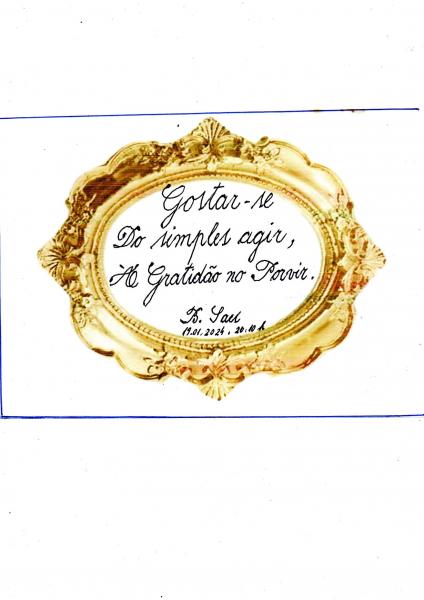 Gostar-se
Do simples agir,
A Gratidão no Porvir.
B. Saul
19.01.2024, 20:10 h